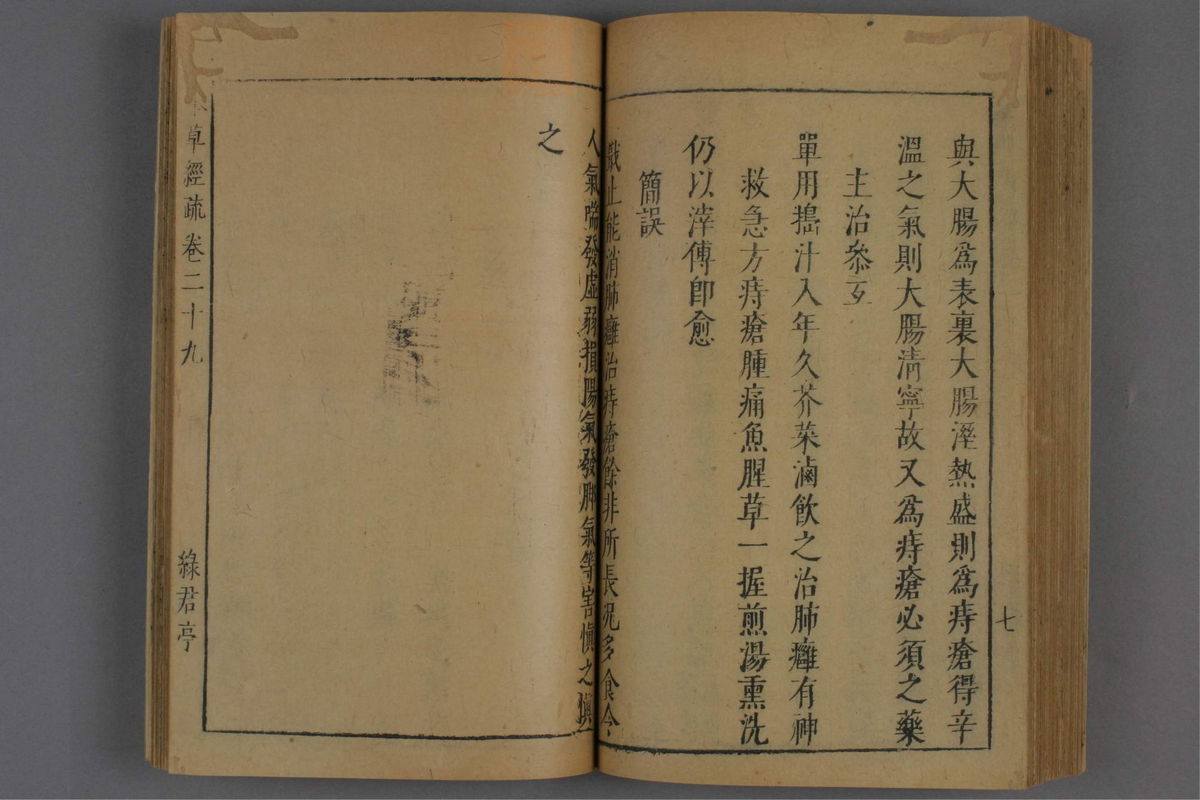 與大腸爲表裏大腸溼熱盛則爲痔瘡得辛
溫之氣則大腸淸寧故又爲痔瘡必須之藥
主治參互
單用搗汁入年久芥菜滷飮之治肺癰有神
救急方痔瘡腫痛魚腥草一握煎湯熏洗
仍以滓傅卽愈
簡誤
蕺止能消肺癰治痔瘡餘非所長況多食令
人氣喘發虛弱損陽氣發脚氣等害愼之愼
之
七
草經疏卷二十九
綠君亭